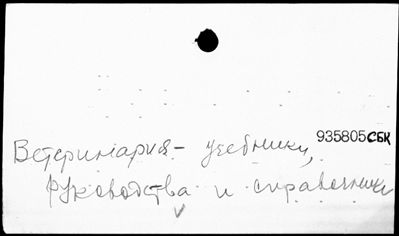 935805СБК
Ветеринария - учебники,
руководства и справочники